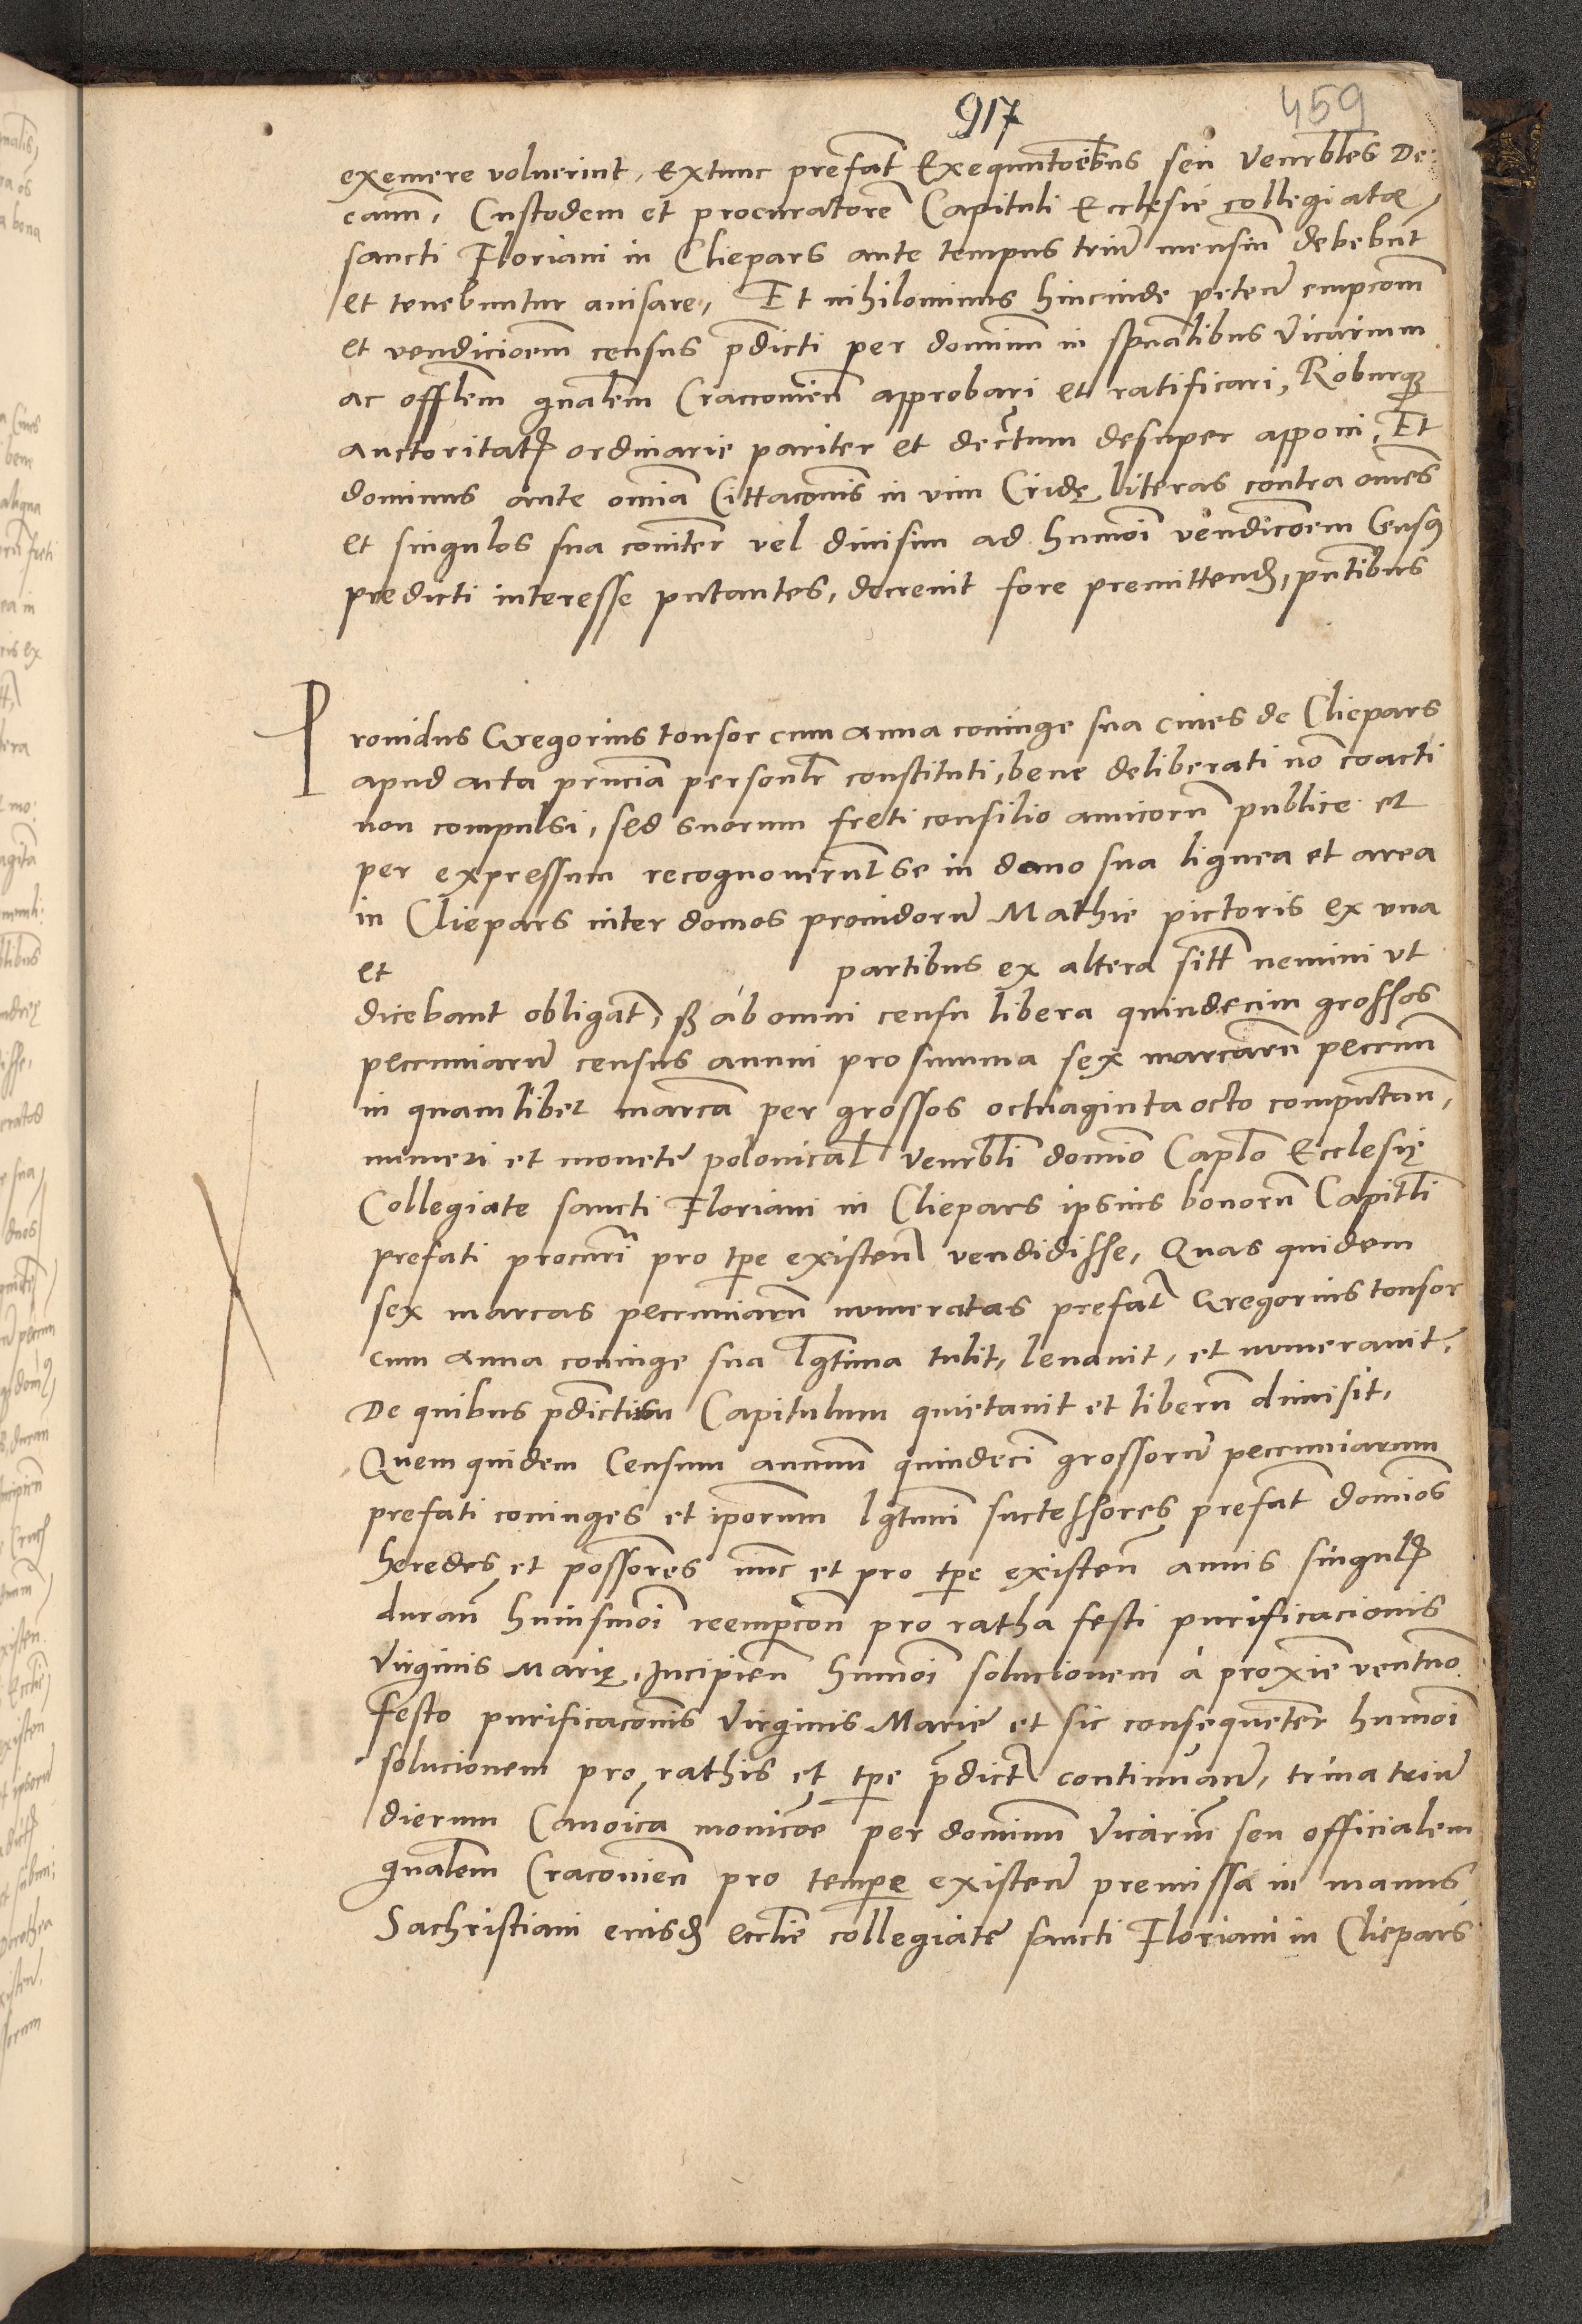 917
459
exemere voluerint, extunc prefat̄ Exequutorībus seu Venrbles De:
canū, Custodem et procuratorē Capituli Ecclesie collegiatæ
sancti Floriani in Cliepars ante tempus triū mensiū debebūt
et tenebuntur avisare, Et nihilominus hincinde peteñ empcom̄
et vendicioem̄ census p̄dicti per dominū in spūalibus Vicarium
ac offlem gnalem Craccovieñ approbari et ratificari, Roburqȝ
auctoritatꝭ ordinarie pariter et decr̄tum desuper apponi, Et
dominus ante om̄ia Cittacōnis in vim Cridę literas contra om̄es
et singulos sua coniter̄ vel divisim ad humoī vendicōem Censꝰ
predicti interesse putantes, decrevit fore premittendꝭ, pn̄tibus
Providus Gregorius tonsor cum Anna coniuge sua cives de Cliepars
apud acta pn̄cia personlr̄ constituti, bene deliberati nō coacti
non compulsi, sed suorum freti consilio amicorū publice et
per expressum recognoverūt se in domo sua lignea et area
in Cliepars inter domos providorū Mathie pictoris ex una
et partibus ex altera sitt̄ nemini ut
dicebant obligat̄, sꝫ ab omni censu libera quindecim grossos
peccuniarū census annui pro summa sex marcarū peccuñ
in quamlibet marcā per grossos octuaginta octo computañ,
numeri et monete polonical̄ Venrbli domīo Caplo Ecclesię
Collegiate sancti Floriani in Cliepars ipsius bonorū Capitli
prefati procurī pro tpe existeñ vendidisse, Quas quidem
sex marcas peccuniarū numeratas prefat̄ Gregorius tonsor
cum Anna coniuge sua lgtima tulit, levavit, et numeravit,
De quibus pdictum Capitulum quietavit et liberū dimisit,
Quem quidem Censum annuū quindeci grossorū peccuniarum
prefati coniuges et iporum lgtimi successores prefat̄ domīos
heredes et possores nūc et pro tpe existeñ annis singulꝭ
durañ huiusmoī reempcoñ pro ratha festi purificacionis
Virginis Marię, Incipieñ humoī solucionem à proxīe ventuō
festo purificacōnis Virginis Marie et sic consequeter humoī
solucionem pro rathis et tpe p̄dict̄ continuañ, trina triū
dierum Canoīca monicōe per dominū Vicariū seu officialem
gnalem Cracovieñ pro tempe existeñ premissa in manus
Sachristiani eiusdꝭ ecclie collegiate sancti Floriani in Cliepars